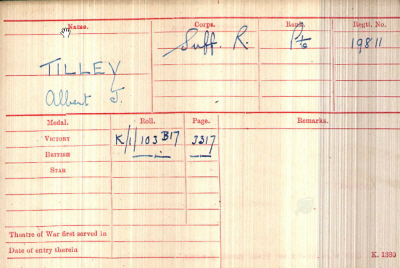 Name. Corps. Rank. Regtl. No.
TILLEY Suff. R. Pte 19811
Albert J.
Medal. Roll. Page. Remarks.
VICTORY K/1/103 B17 3317
BRITISH
STAR
Theatre of War first served in
Date of entry therein
K. 1380